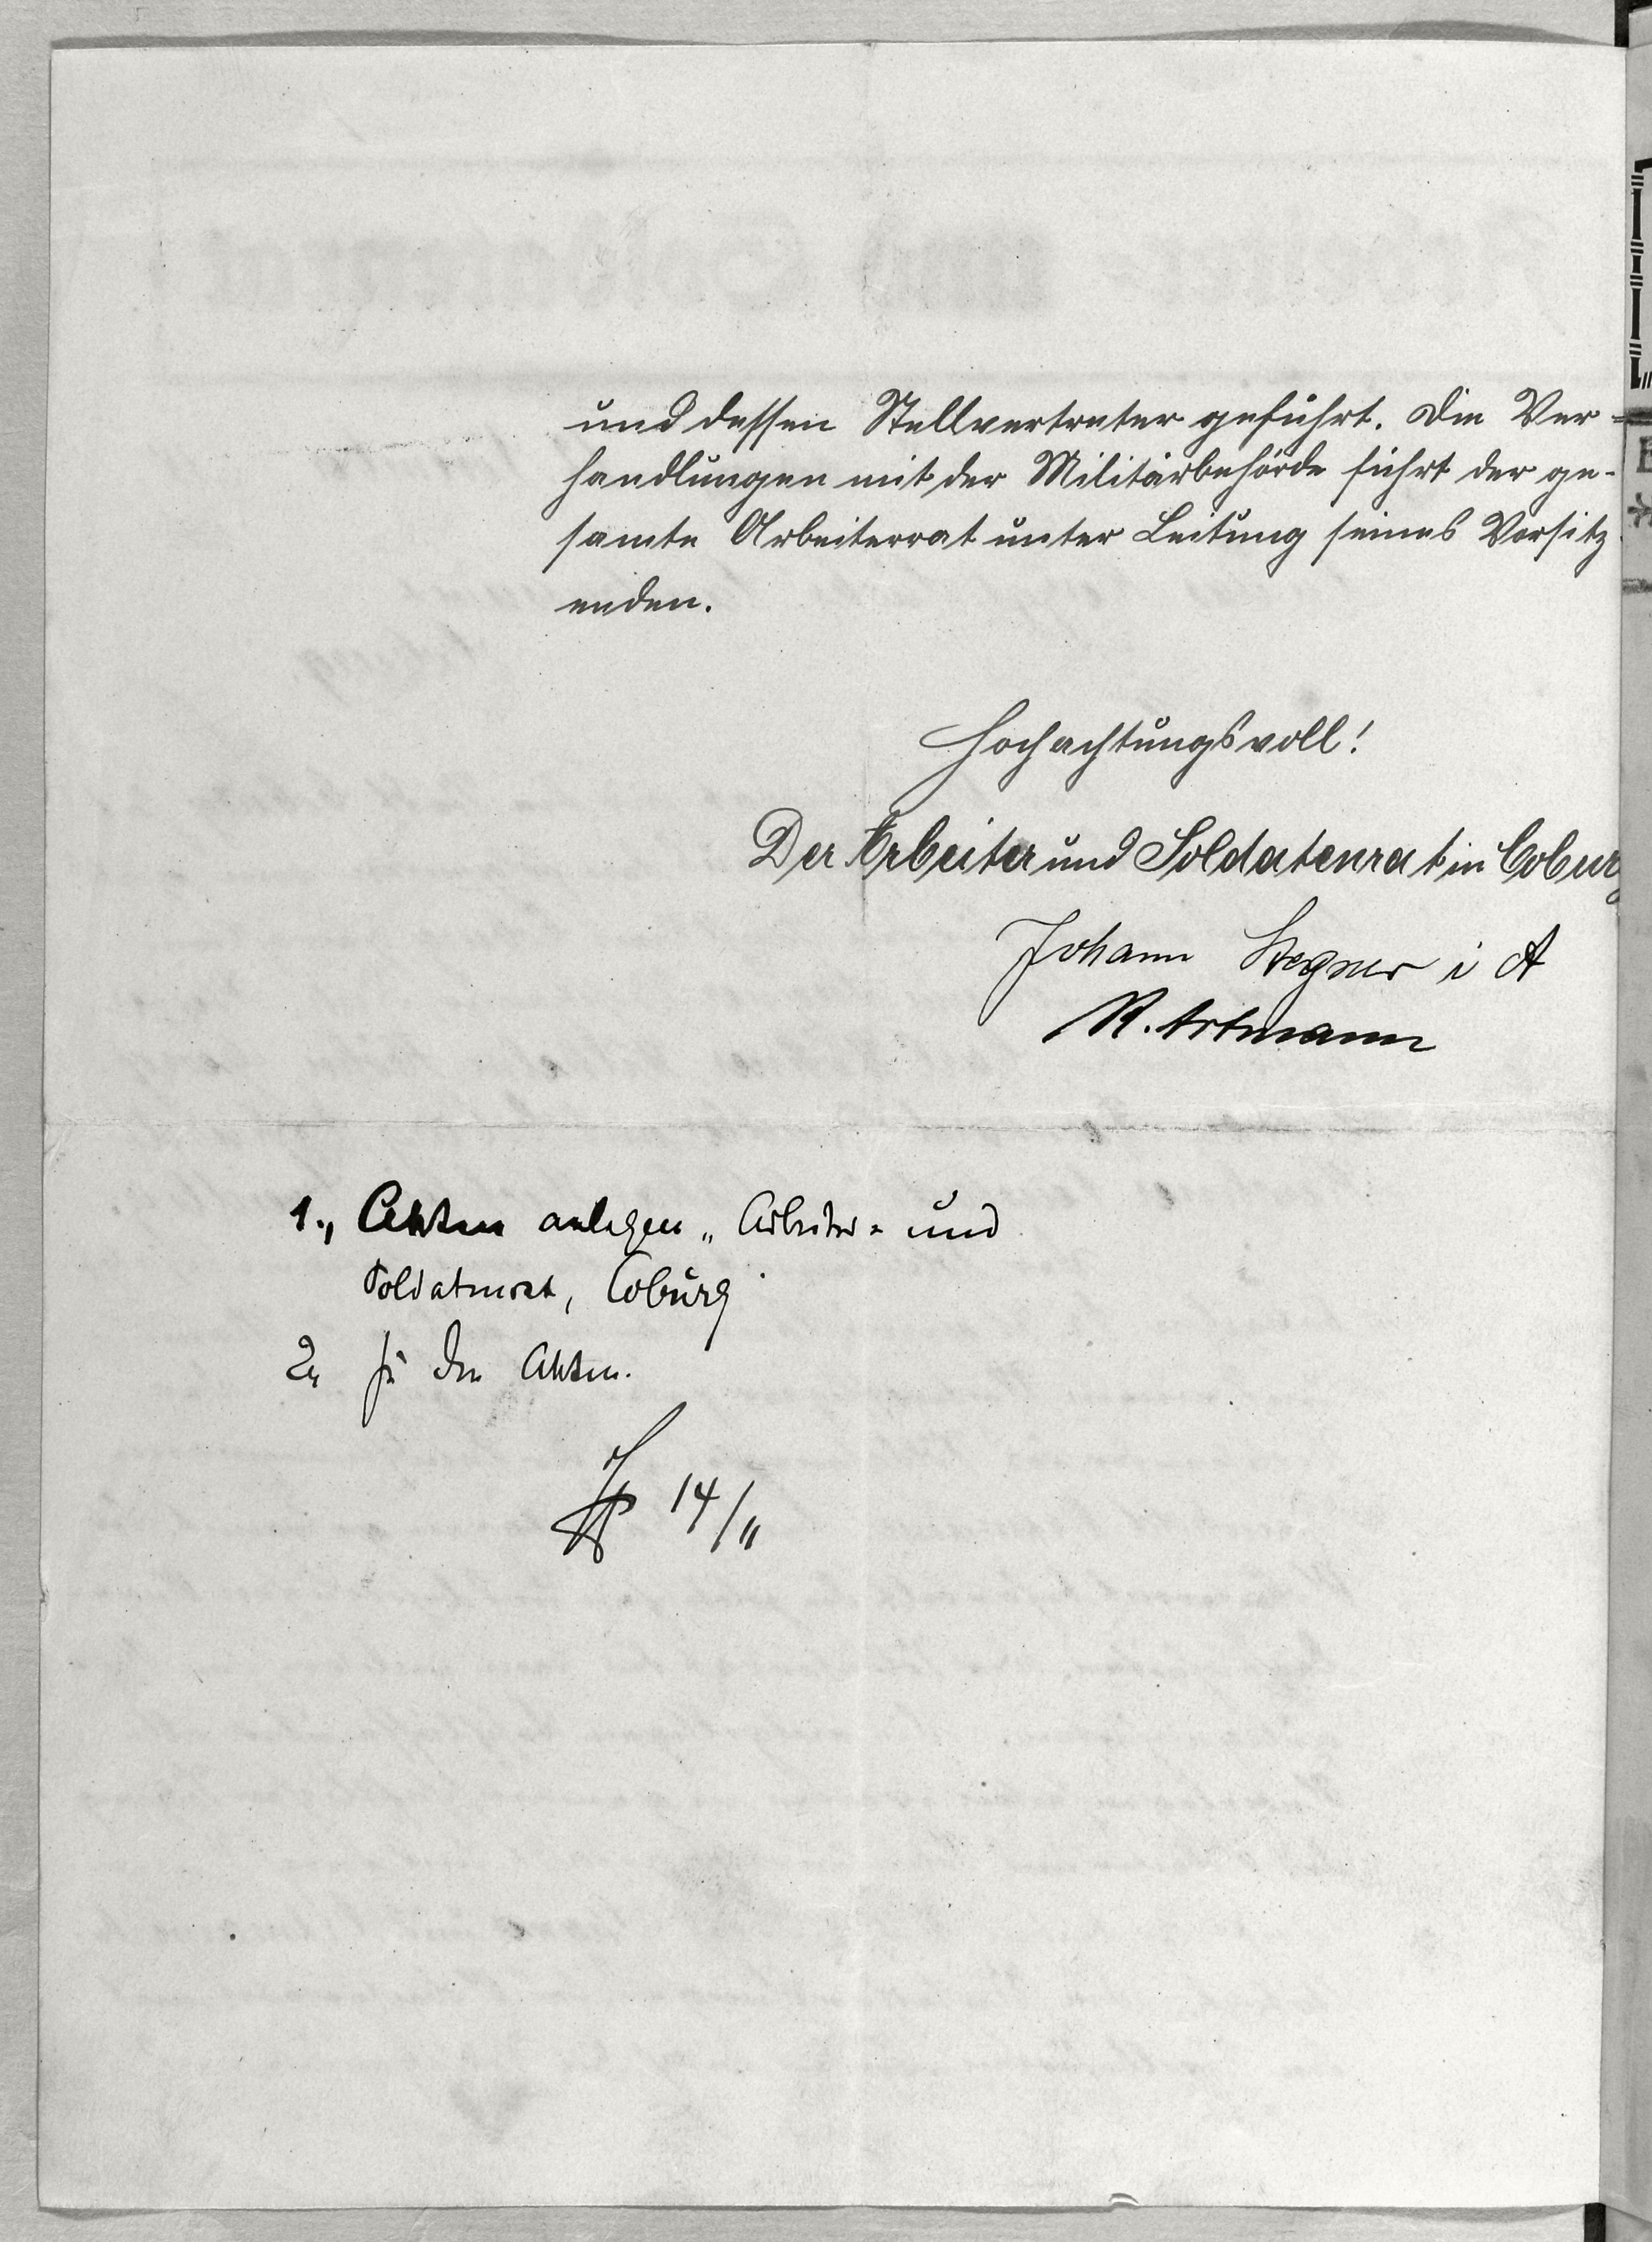 und dessen Stellvertreter geführt. Die Ver-
handlungen mit der Militärbehörde führt der ge-
samte Arbeiterrat unter Leitung seines Vorsitz
enden.
Hochachtungsvoll!
Der Arbeiter und Soldatenrat in Coburg
Johann Stegner i A
R. Artmann
1., Akten anlegen „Arbeiter- und
Soldatenrat, Coburg
2, zu den Akten.
14/11